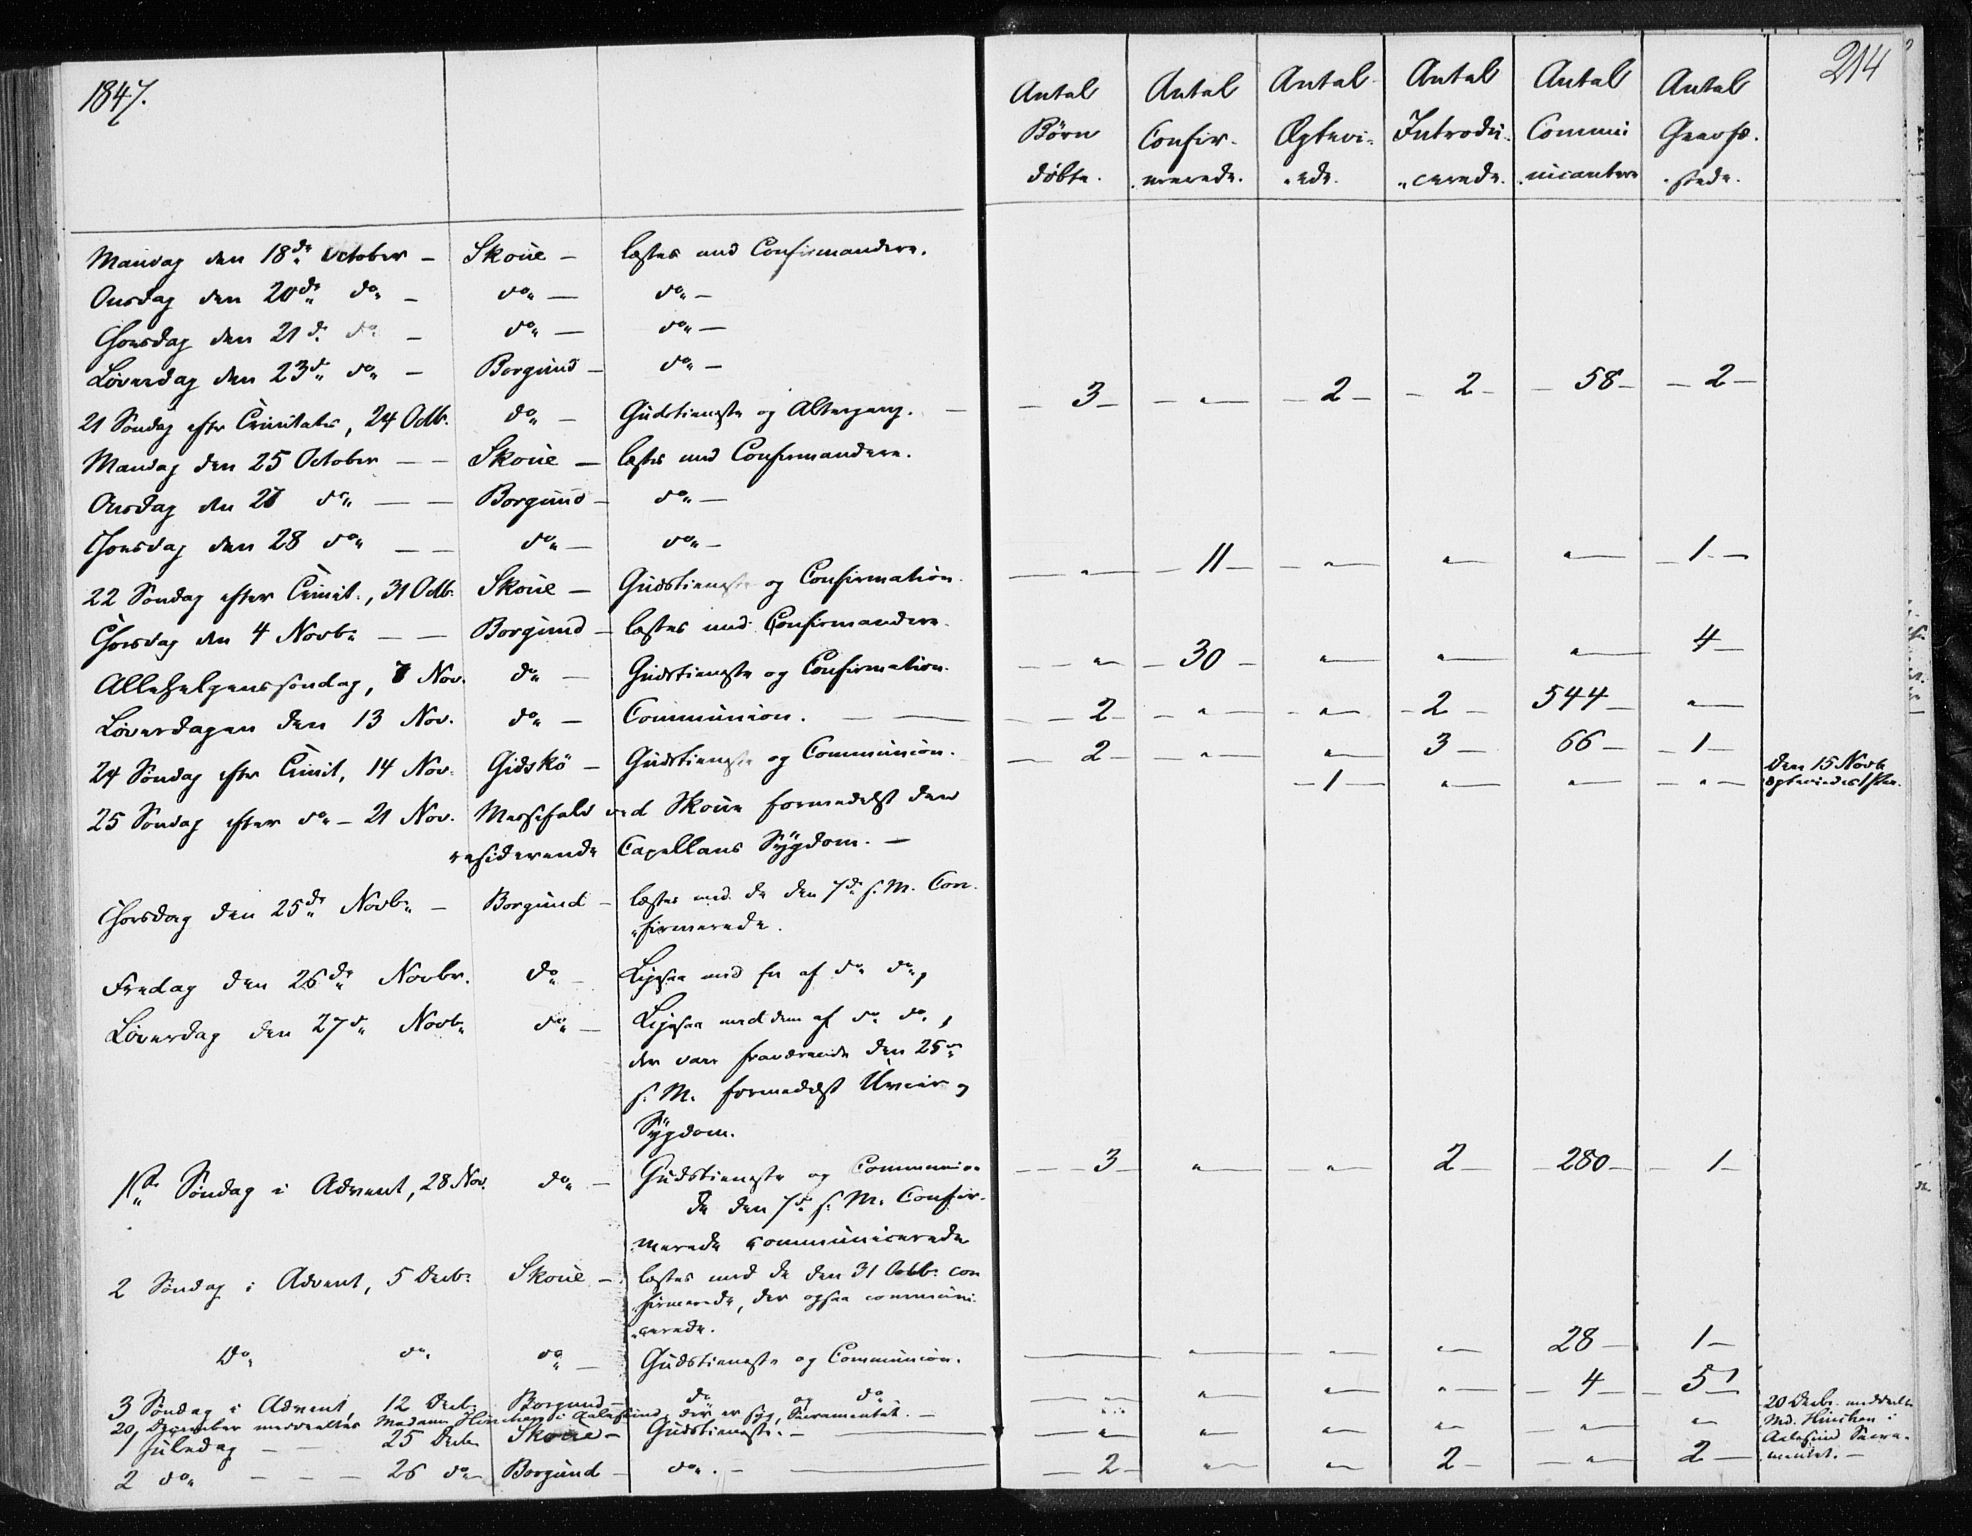 1847.
214
Antal Børn døbte. Antal Confir- merede. Antal Ægtevi- ede. Antal Introdu- cerede. Antal Commu nicantere Antal Gravfæ- stede.
Mandag den 18de October - Skoue - læstes med Confirmandere.
Onsdag den 20de do - do - do -
Thorsdag den 21de do - do - do -
Løverdag den 23de do - Borgund - do -
21 Søndag efter Trinitatis, 24 Octb. do - Gudstieneste og Altergang. - 3 - " - 2 - 2 - 58 - 2 -
Mandag den 25 October - - Skoue - læstes med Confirmandere.
Onsdag den 27 do - - Borgund - do -
Thorsdag den 28 do - - do - do -
22 Søndag efter Trinit., 31 Octb. Skoue - Gudstieneste og Confirmation. - " - 11 - " - " - " - 1 -
Thorsdag den 4 Novb. - - Borgund - læstes med Confirmandere.
Allehelgenssøndag, 7 Nov. do - Gudstieneste og Confirmation. - " - 30 - " - " - " - 4 -
Løverdagen den 13 Nov. do - Communion. - 2 - " - " - 2 - 544 - " -
24 Søndag efter Trinit, 14 Nov. Gidskö - Gudstieneste og Communion. - 2 - " - " - 3 - 66 - 1 -
- 1 - " - " - " - Den 15 Novb ægteviedes 1 Par.
25 Søndag efter do - 21 Nov. Messefald ved Skoue formedelst den
residerende Capellans Sygdom. -
Thorsdag den 25de Novb. - Borgund - læstes med de den 7de s. M. Con-
firmerede.
Fredag den 26de Novbr. do - Ligesaa med en af do do,
Løverdag den 27de Novb. do - Ligesaa med dem af do do,
der vare fraværende den 25de
s. M. formedelst Uveir og
Sygdom.
1ste Søndag i Advent, 28 Nov. do - Gudstieneste og Communion - 3 - " - " - 2 - 280 - 1 -
De den 7de s. M. Confir-
merede communicerede
2 Søndag i Advent, 5 Decb. Skoue - læstes med de den 31 Octb. con
firmerede, der ogsaa communi-
cerede.
Do do do - Gudstieneste og Communion. - " - " - " - 28 - 1 -
3 Søndag i Advent, 12 Decb. Borgund - do og do - " - " - " - " - 4 - 5 -
20 December meddeeltes Madame Hinchen i Aalesund, der er syg, Sacramentet. - 20 Decbr. meddeeltes
Md. Hinchen i
Aalesund Sacra-
mentet. -
1 Juledag - 25 Decb Skoue - Gudstieneste. - " - " - " - " - " - " -
2 do - - - 26 do - Borgund - do. - 2 - " - " - 2 - " - 2 -